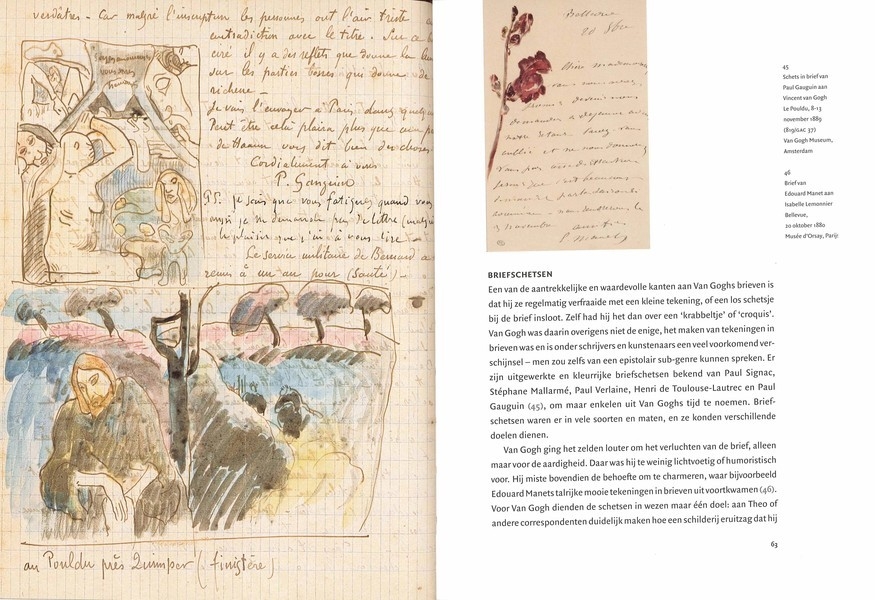 verdâtres – Car malgré l'inscription les personnes ont l'air triste
contradiction avec le titre. Sur ce b
ciré il y a des reflets que donne la lu
sur les parties bosses qui donne de
richesse –
Je vais l'envoyer à Paris dans quelq
Peut être cela plaira plus que
de Haan vous dit bien des choses
Cordialement à vous
P. Gauguin
PS. Je sais que vous fatiguez quand vous
aussi je ne demande pas de lettre (malgré
le plaisir que j'ai à vous lire –
Le service militaire de Bernard a
remis à un an pour (santé) –
Soyez amoureuses
vous serez
heureuses
au Pouldu près Quimper (finistère)
Bellevue
20 8bre
45
Schets in brief van
Paul Gauguin aan
Vincent van Gogh
Le Pouldu, 8-13
november 1889
(819/GAC 37)
Van Gogh Museum,
Amsterdam
46
Brief van
Edouard Manet aan
Isabelle Lemonnier
Bellevue,
20 oktober 1880
Musée d'Orsay, Parijs
BRIEFSCHETSEN
Een van de aantrekkelijke en waardevolle kanten aan Van Goghs brieven is
dat hij ze regelmatig verfraaide met een kleine tekening, of een los schetsje
bij de brief insloot. Zelf had hij het dan over een 'krabbeltje' of 'croquis'.
Van Gogh was daarin overigens niet de enige, het maken van tekeningen in
brieven was en is onder schrijvers en kunstenaars een veel voorkomend ver-
schijnsel – men zou zelfs van een epistolair sub-genre kunnen spreken. Er
zijn uitgewerkte en kleurrijke briefschetsen bekend van Paul Signac,
Stéphane Mallarmé, Paul Verlaine, Henri de Toulouse-Lautrec en Paul
Gauguin (45), om maar enkelen uit Van Goghs tijd te noemen. Brief-
schetsen waren er in vele soorten en maten, en ze konden verschillende
doelen dienen.
Van Gogh ging het zelden louter om het verluchten van de brief, alleen
maar voor de aardigheid. Daar was hij te weinig lichtvoetig of humoristisch
voor. Hij miste bovendien de behoefte om te charmeren, waar bijvoorbeeld
Edouard Manets talrijke mooie tekeningen in brieven uit voortkwamen (46).
Voor Van Gogh dienden de schetsen in wezen maar één doel: aan Theo of
andere correspondenten duidelijk maken hoe een schilderij eruitzag dat hij
63